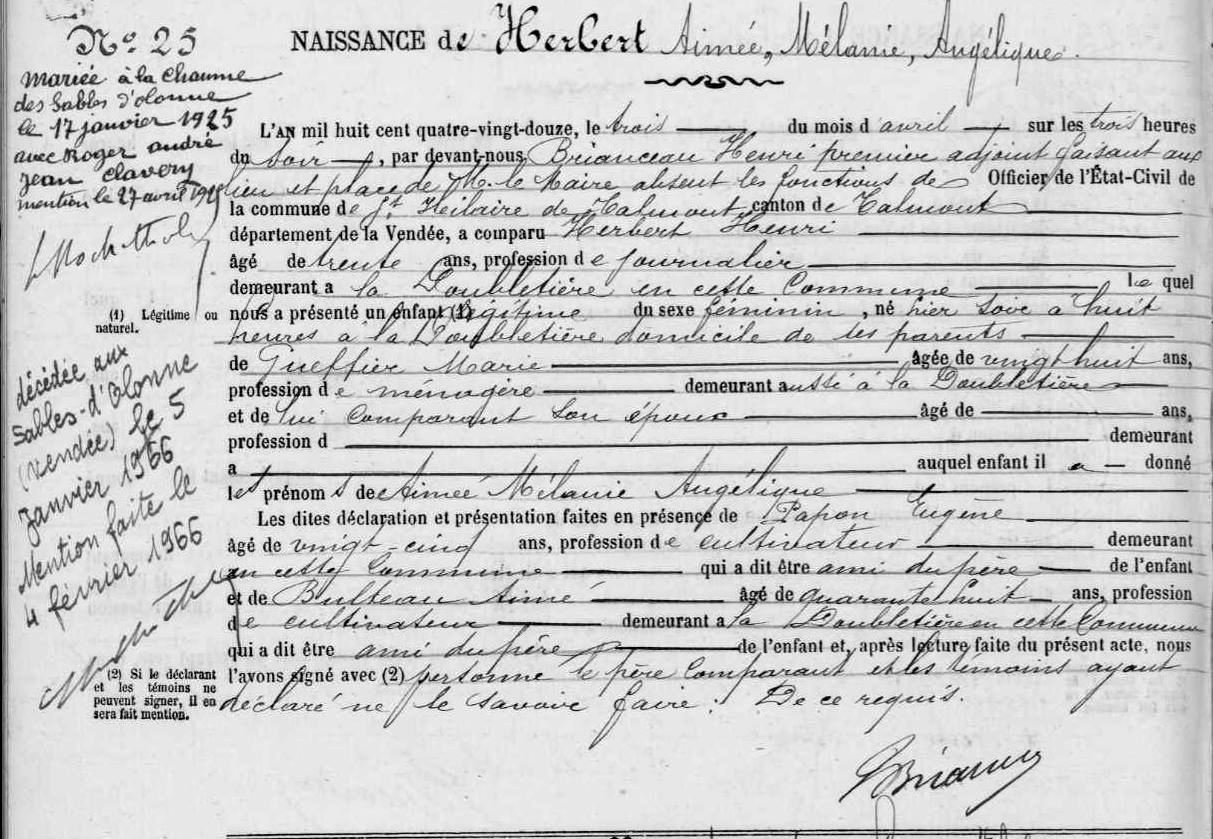 N° 25
NAISSANCE de Herbert Aimée, Mélanie, Angélique.
Mariée à la Chaume
des Sables d'olonne
le 17 janvier 1925
avec Roger andré
Jean Clavery
mention le 27 avril
L'AN mil huit cent quatre-vingt-douze, le trois du mois d'avril sur les trois heures
du soir, par devant-nous Brianceau Henri premier adjoint faisant aux
lieu et place de M. le Maire absent les fonctions de Officier de l'État-Civil de
la commune de St Hilaire de Talmont canton de Talmont
département de la Vendée, a comparu Herbert Henri
âgé de trente ans, profession de journalier
demeurant a la Doubletière en cette Commune Le quel
nous a présenté un enfant (1) légitime du sexe féminin, né hier soir à huit
heures à la Doubletière domicile de ses parents
de Gueffier Marie âgée de vingt huit ans,
profession de ménagère demeurant aussi à la Doubletière
et de lui Comparant son époux âgé de ans,
profession d demeurant
a auquel enfant il a donné
les prénoms de Aimée Mélanie Angélique
Les dites déclaration et présentation faites en présence de Papon Eugène
âgé de vingt-cinq ans, profession de cultivateur demeurant
en cette Commune qui a dit être ami du père de l'enfant
et de Bulteau Aimé âgé de quarante huit ans, profession
de cultivateur demeurant a la Doubletière en cette Commune
qui a dit être ami du père de l'enfant et, après lecture faite du présent acte, nous
l'avons signé avec (2) personne le père Comparant et les témoins ayant
déclaré ne le savoir faire. De ce requis.
(1) Légitime ou
naturel.
décédée aux
Sables-d'Olonne
(Vendée) le 5
Janvier 1966
Mention faite le
4 février 1966
(2) Si le déclarant
et les témoins ne
peuvent signer, il en
sera fait mention.